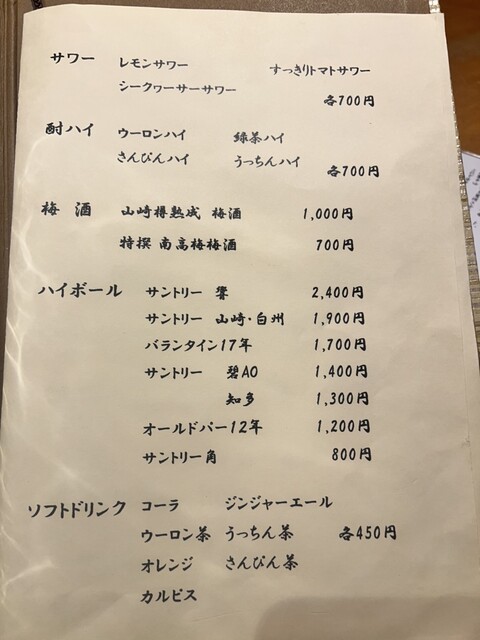 サワー レモンサワー すっきりトマトサワー
シークヮーサーサワー 各700円
酎ハイ ウーロンハイ 緑茶ハイ
さんぴんハイ うっちんハイ 各700円
梅 酒 山崎樽熟成 梅酒 1,000円
特撰 南高梅梅酒 700円
ハイボール サントリー 響 2,400円
サントリー 山崎・白州 1,900円
バランタイン17年 1,700円
サントリー 碧AO 1,400円
知多 1,300円
オールドパー12年 1,200円
サントリー角 800円
ソフトドリンク コーラ ジンジャーエール
ウーロン茶 うっちん茶 各450円
オレンジ さんぴん茶
カルピス